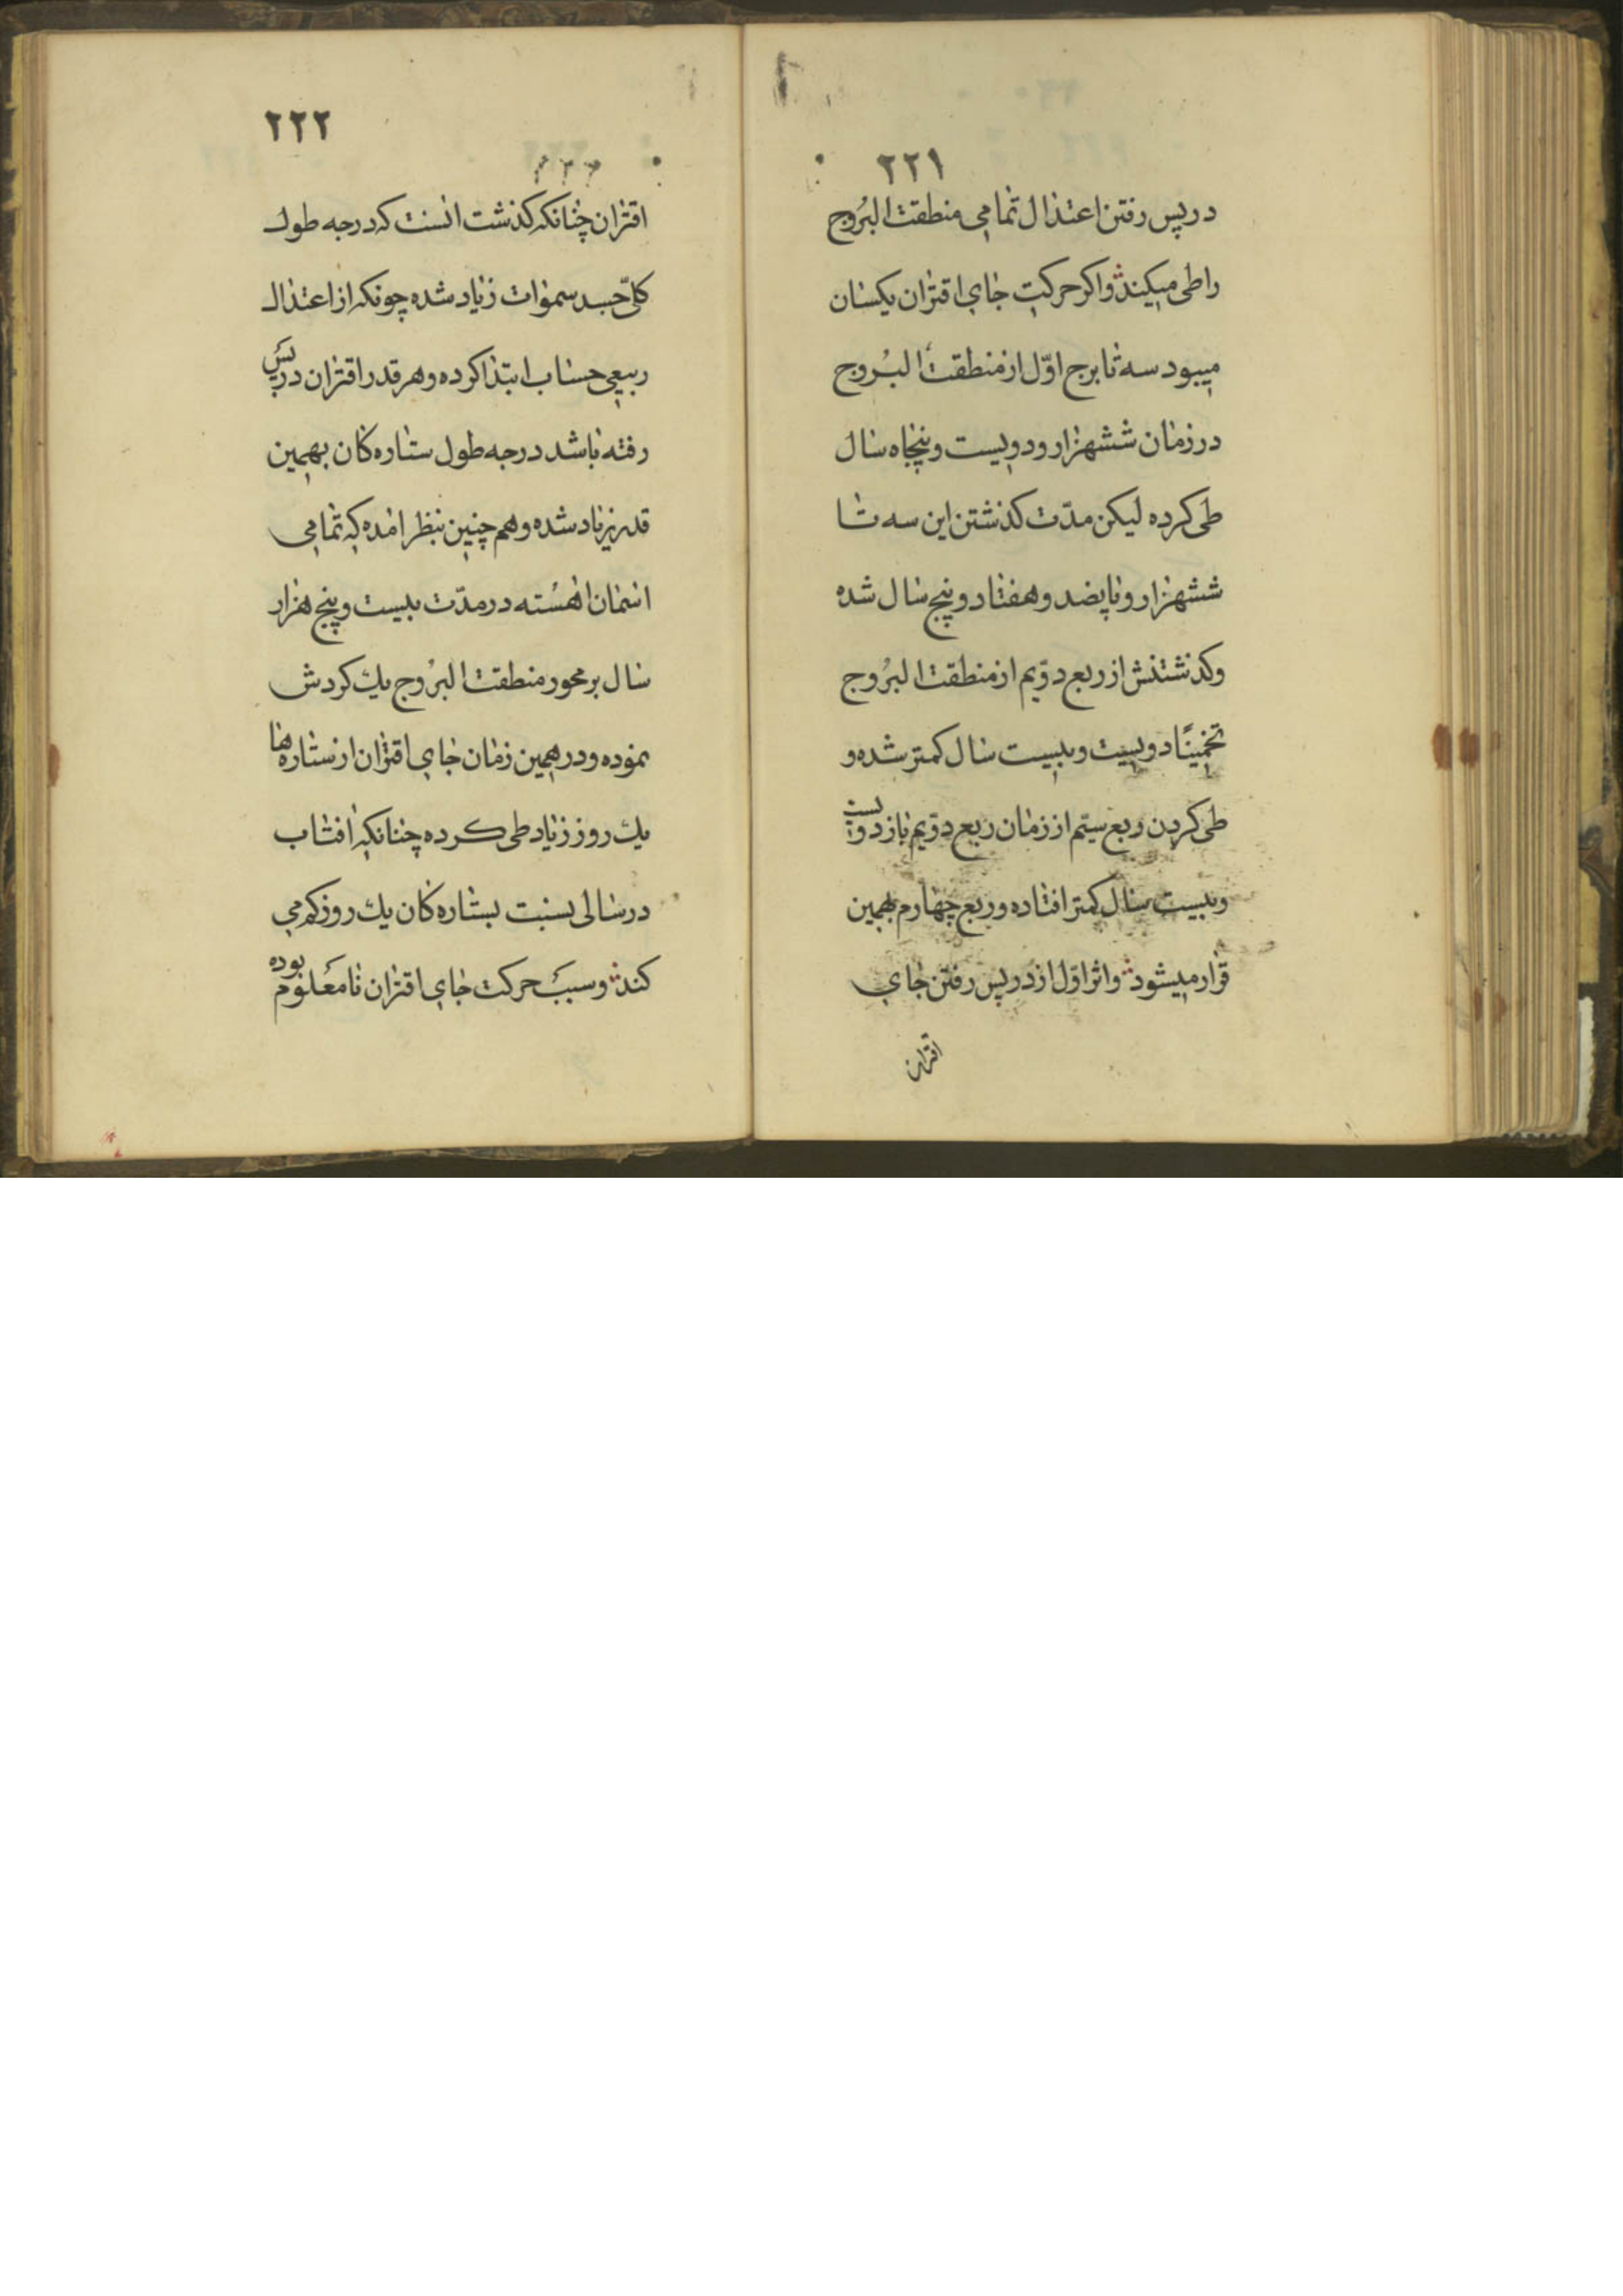 ۲۲۱
در پس رفتن اعتدال تمامی منطقت البُروج
را طی میکند و اکر حرکت جای اقتران یکسان
میبود سه تا برج اوّل از منطقت البُروج
در زمان ششهزار و دویست و پنجاه سال
طی کرده لیکن مدّت کذشتن این سه تا
ششهزار و پانصد و هفتاد و پنج سال شده
و کذشتنش از ربع دوّیم از منطقت البُروج
تخمینًا دویست و بیست سال کمتر شده و
طی کردن ربع سیّم از زمان ربع دوّیم باز دویست
و بیست سال کمتر افتاده و ربع چهارم بهمین
قرار میشود و اثر اوّل از در پس رفتن جای
اقتران
۲۲۲
اقتران چنانکه کذشت انست که درجه طول
کلّ جسد سموات زیاد شده چونکه از اعتدال
ربیعی حساب ابتدا کرده و هر قدر اقتران در پس
رفته باشد درجه طول ستاره کان بهمین
قدر زیاد شده و هم چنین بنظر امده که تمامی
اسمان اهسته در مدّت بیست و پنج هزار
سال بر محور منطقت البُروج یك کردش
نموده و در همین زمان جای اقتران از ستاره ها
یك روز زیاد طی کرده چنانکه افتاب
در سالی بسنبت بستاره کان یك روز کم می
کند و سبب حرکت جای اقتران نامعلوم بوده